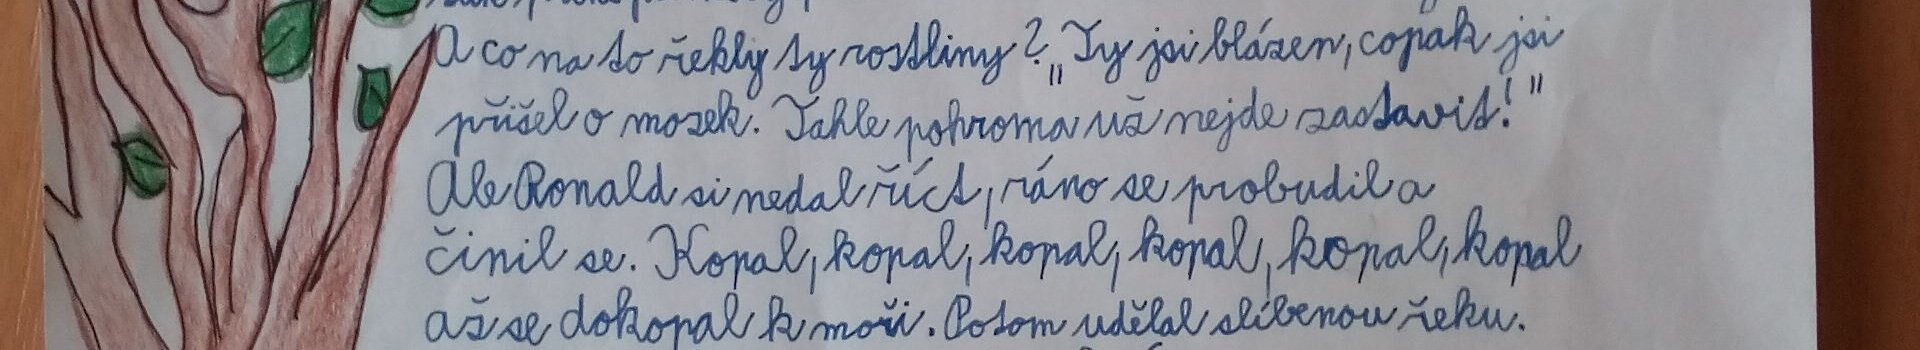 A co na to řekly ty rostliny? „Ty jsi blázen, copak jsi
přišel o mozek. Tahle pohroma už nejde zastavit!"
Ale Ronald si nedal říct, ráno se probudil a
činil se. Kopal, kopal, kopal, kopal, kopal, kopal
až se dokopal k moři. Potom udělal slíbenou řeku.